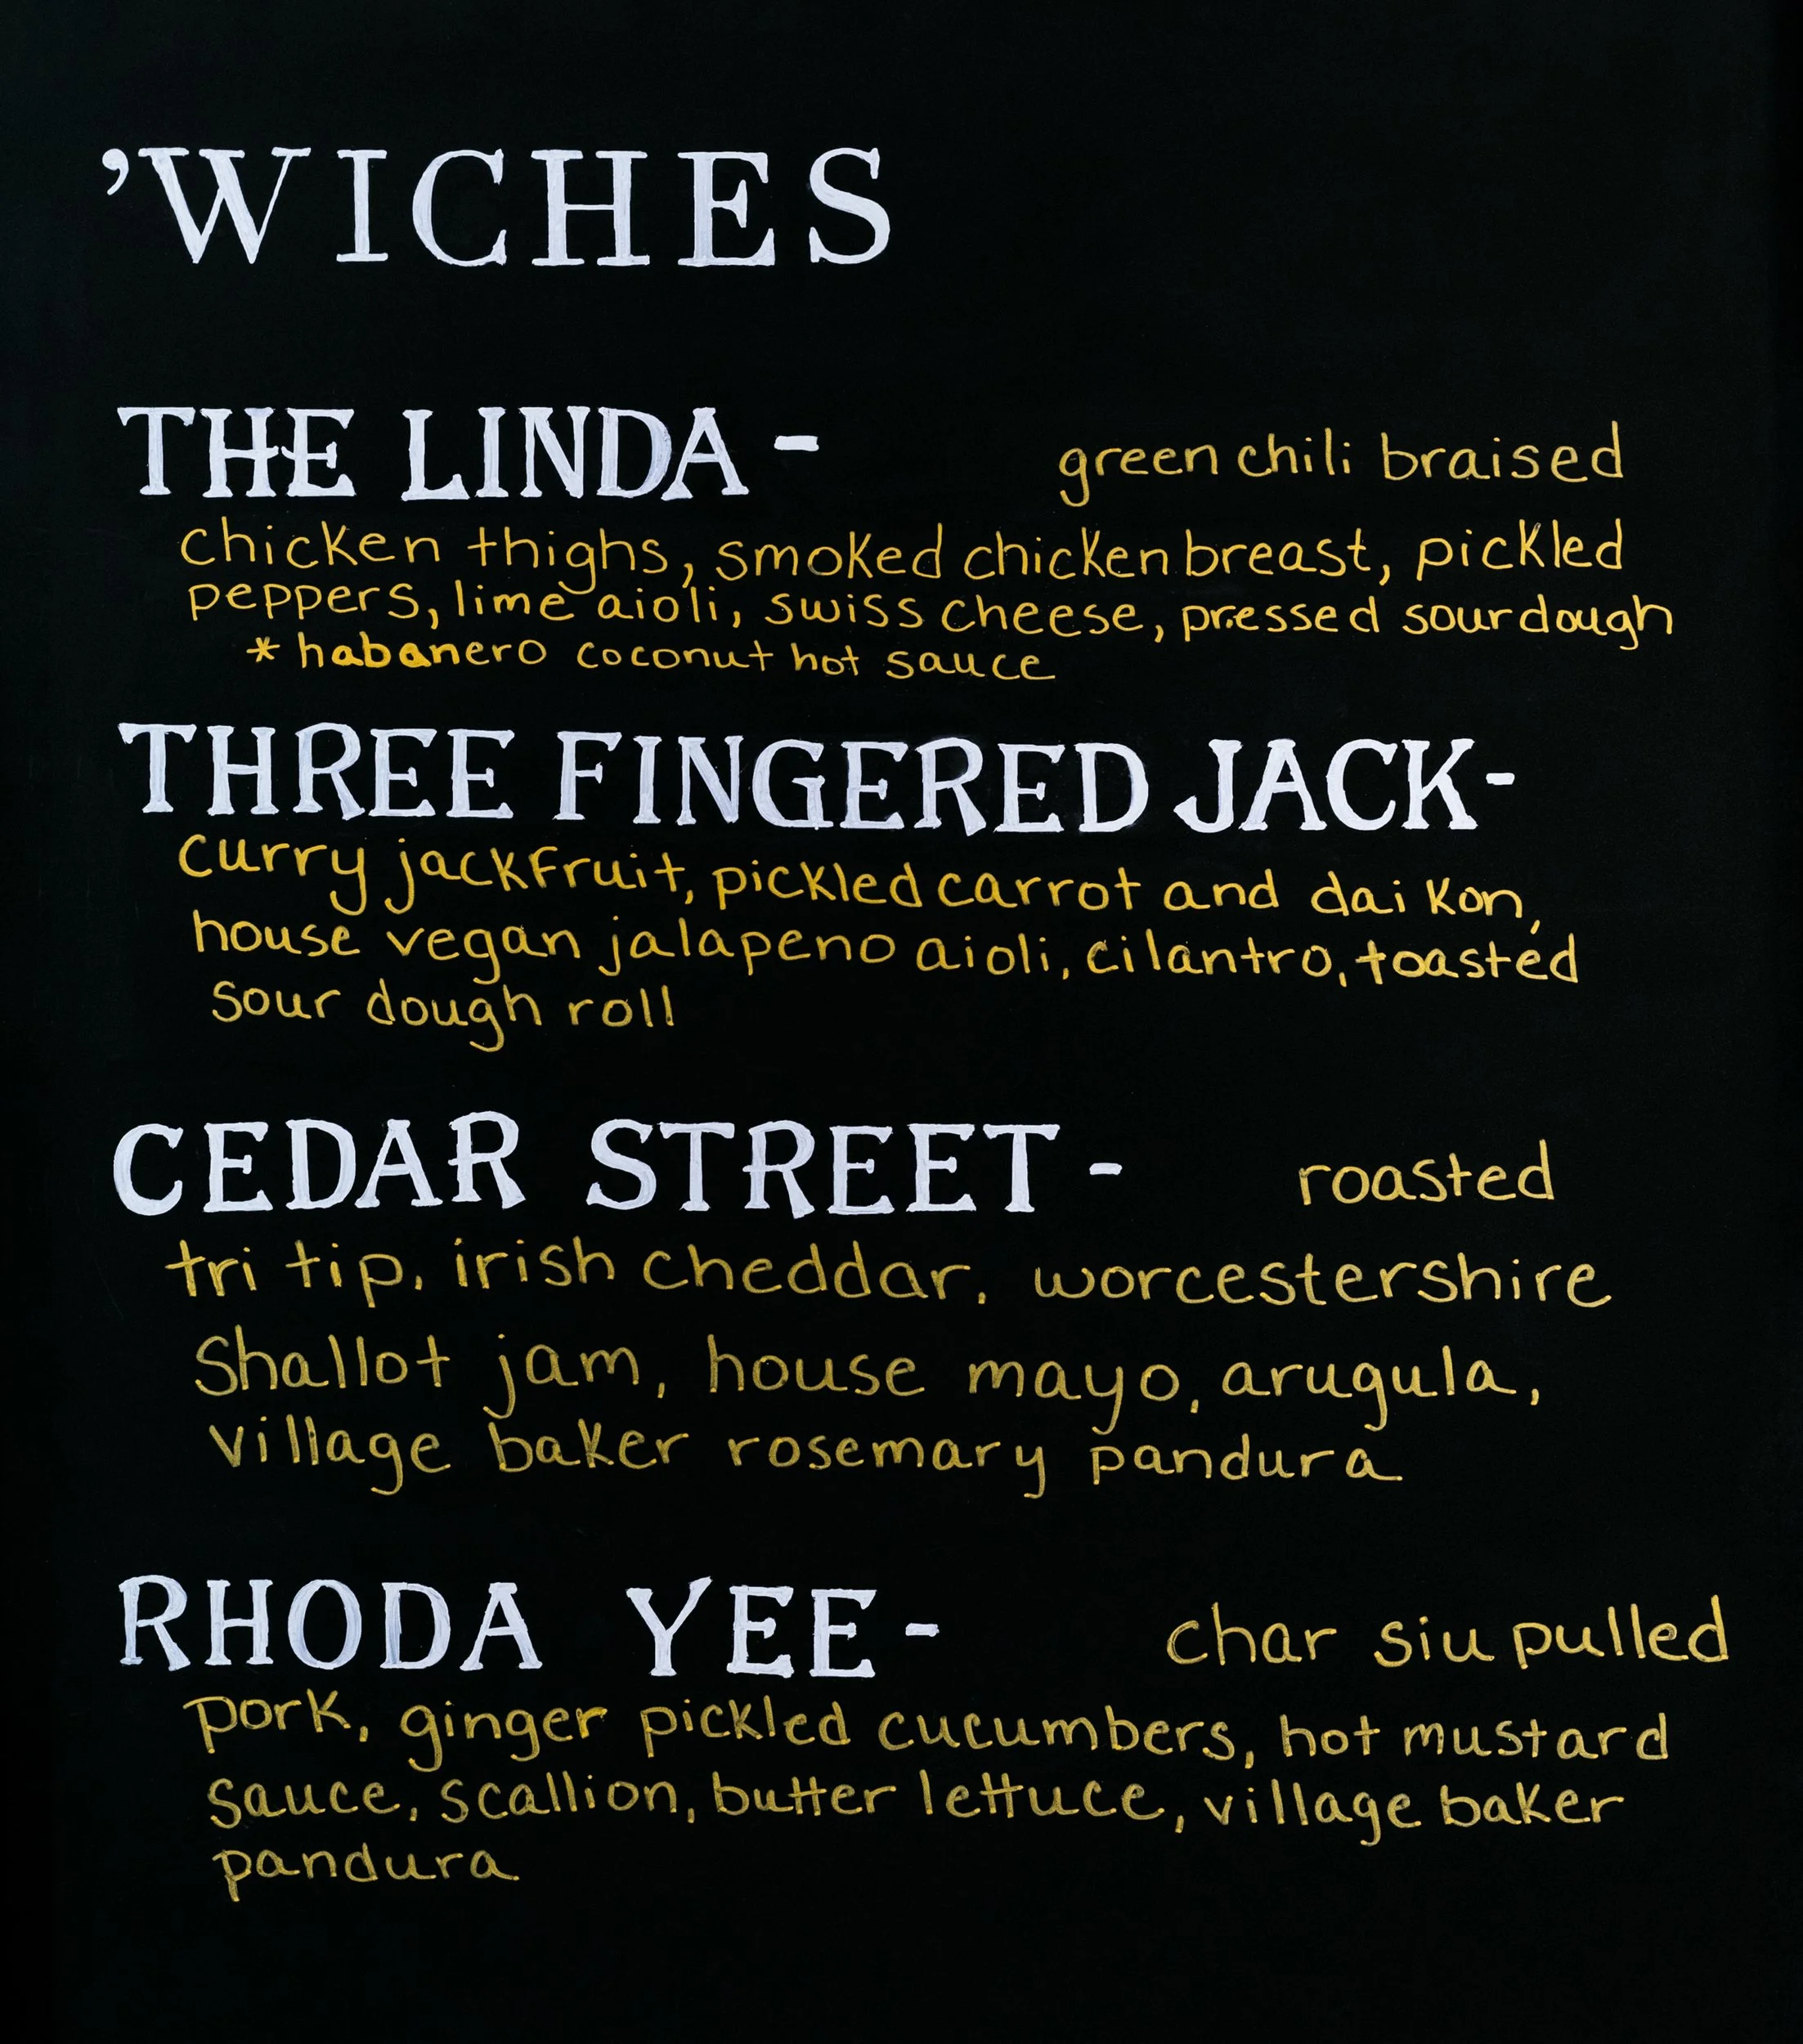 ’WICHES
THE LINDA - green chili braised
chicken thighs, smoked chicken breast, pickled
peppers, lime aioli, swiss cheese, pressed sourdough
* habanero coconut hot sauce
THREE FINGERED JACK-
curry jackfruit, pickled carrot and daikon,
house vegan jalapeno aioli, cilantro, toasted
sour dough roll
CEDAR STREET - roasted
tri tip, irish cheddar, worcestershire
shallot jam, house mayo, arugula,
village baker rosemary pandura
RHODA YEE - char siu pulled
pork, ginger pickled cucumbers, hot mustard
sauce, scallion, butter lettuce, village baker
pandura